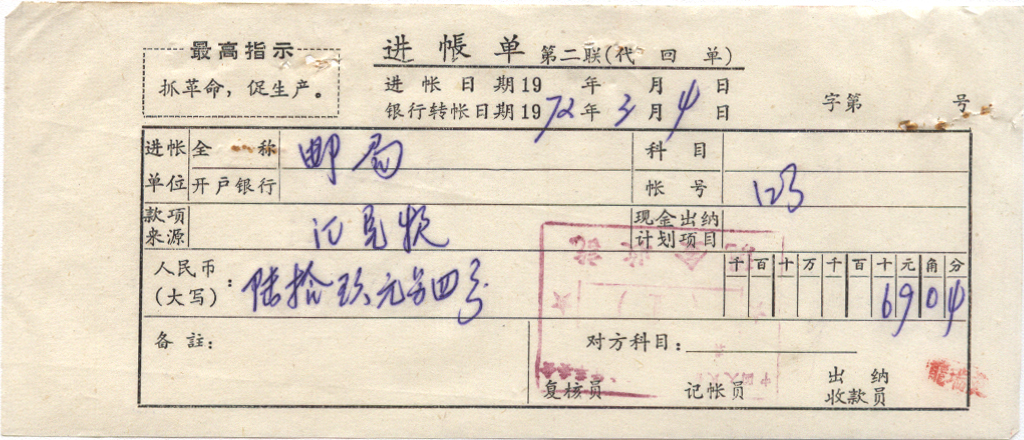 最高指示
抓革命，促生产。
进帐单 第二联(代回单)
进帐日期19 年 月 日
银行转帐日期1972年3月4日
字第 号
进帐单位 全称 邮局 科目
开户银行 帐号 123
款项来源 汇兑款 现金出纳计划项目
人民币(大写)：陆拾玖元另四分
千百十万千百十元角分
6904
备註：
对方科目：
复核员 记帐员 出纳收款员